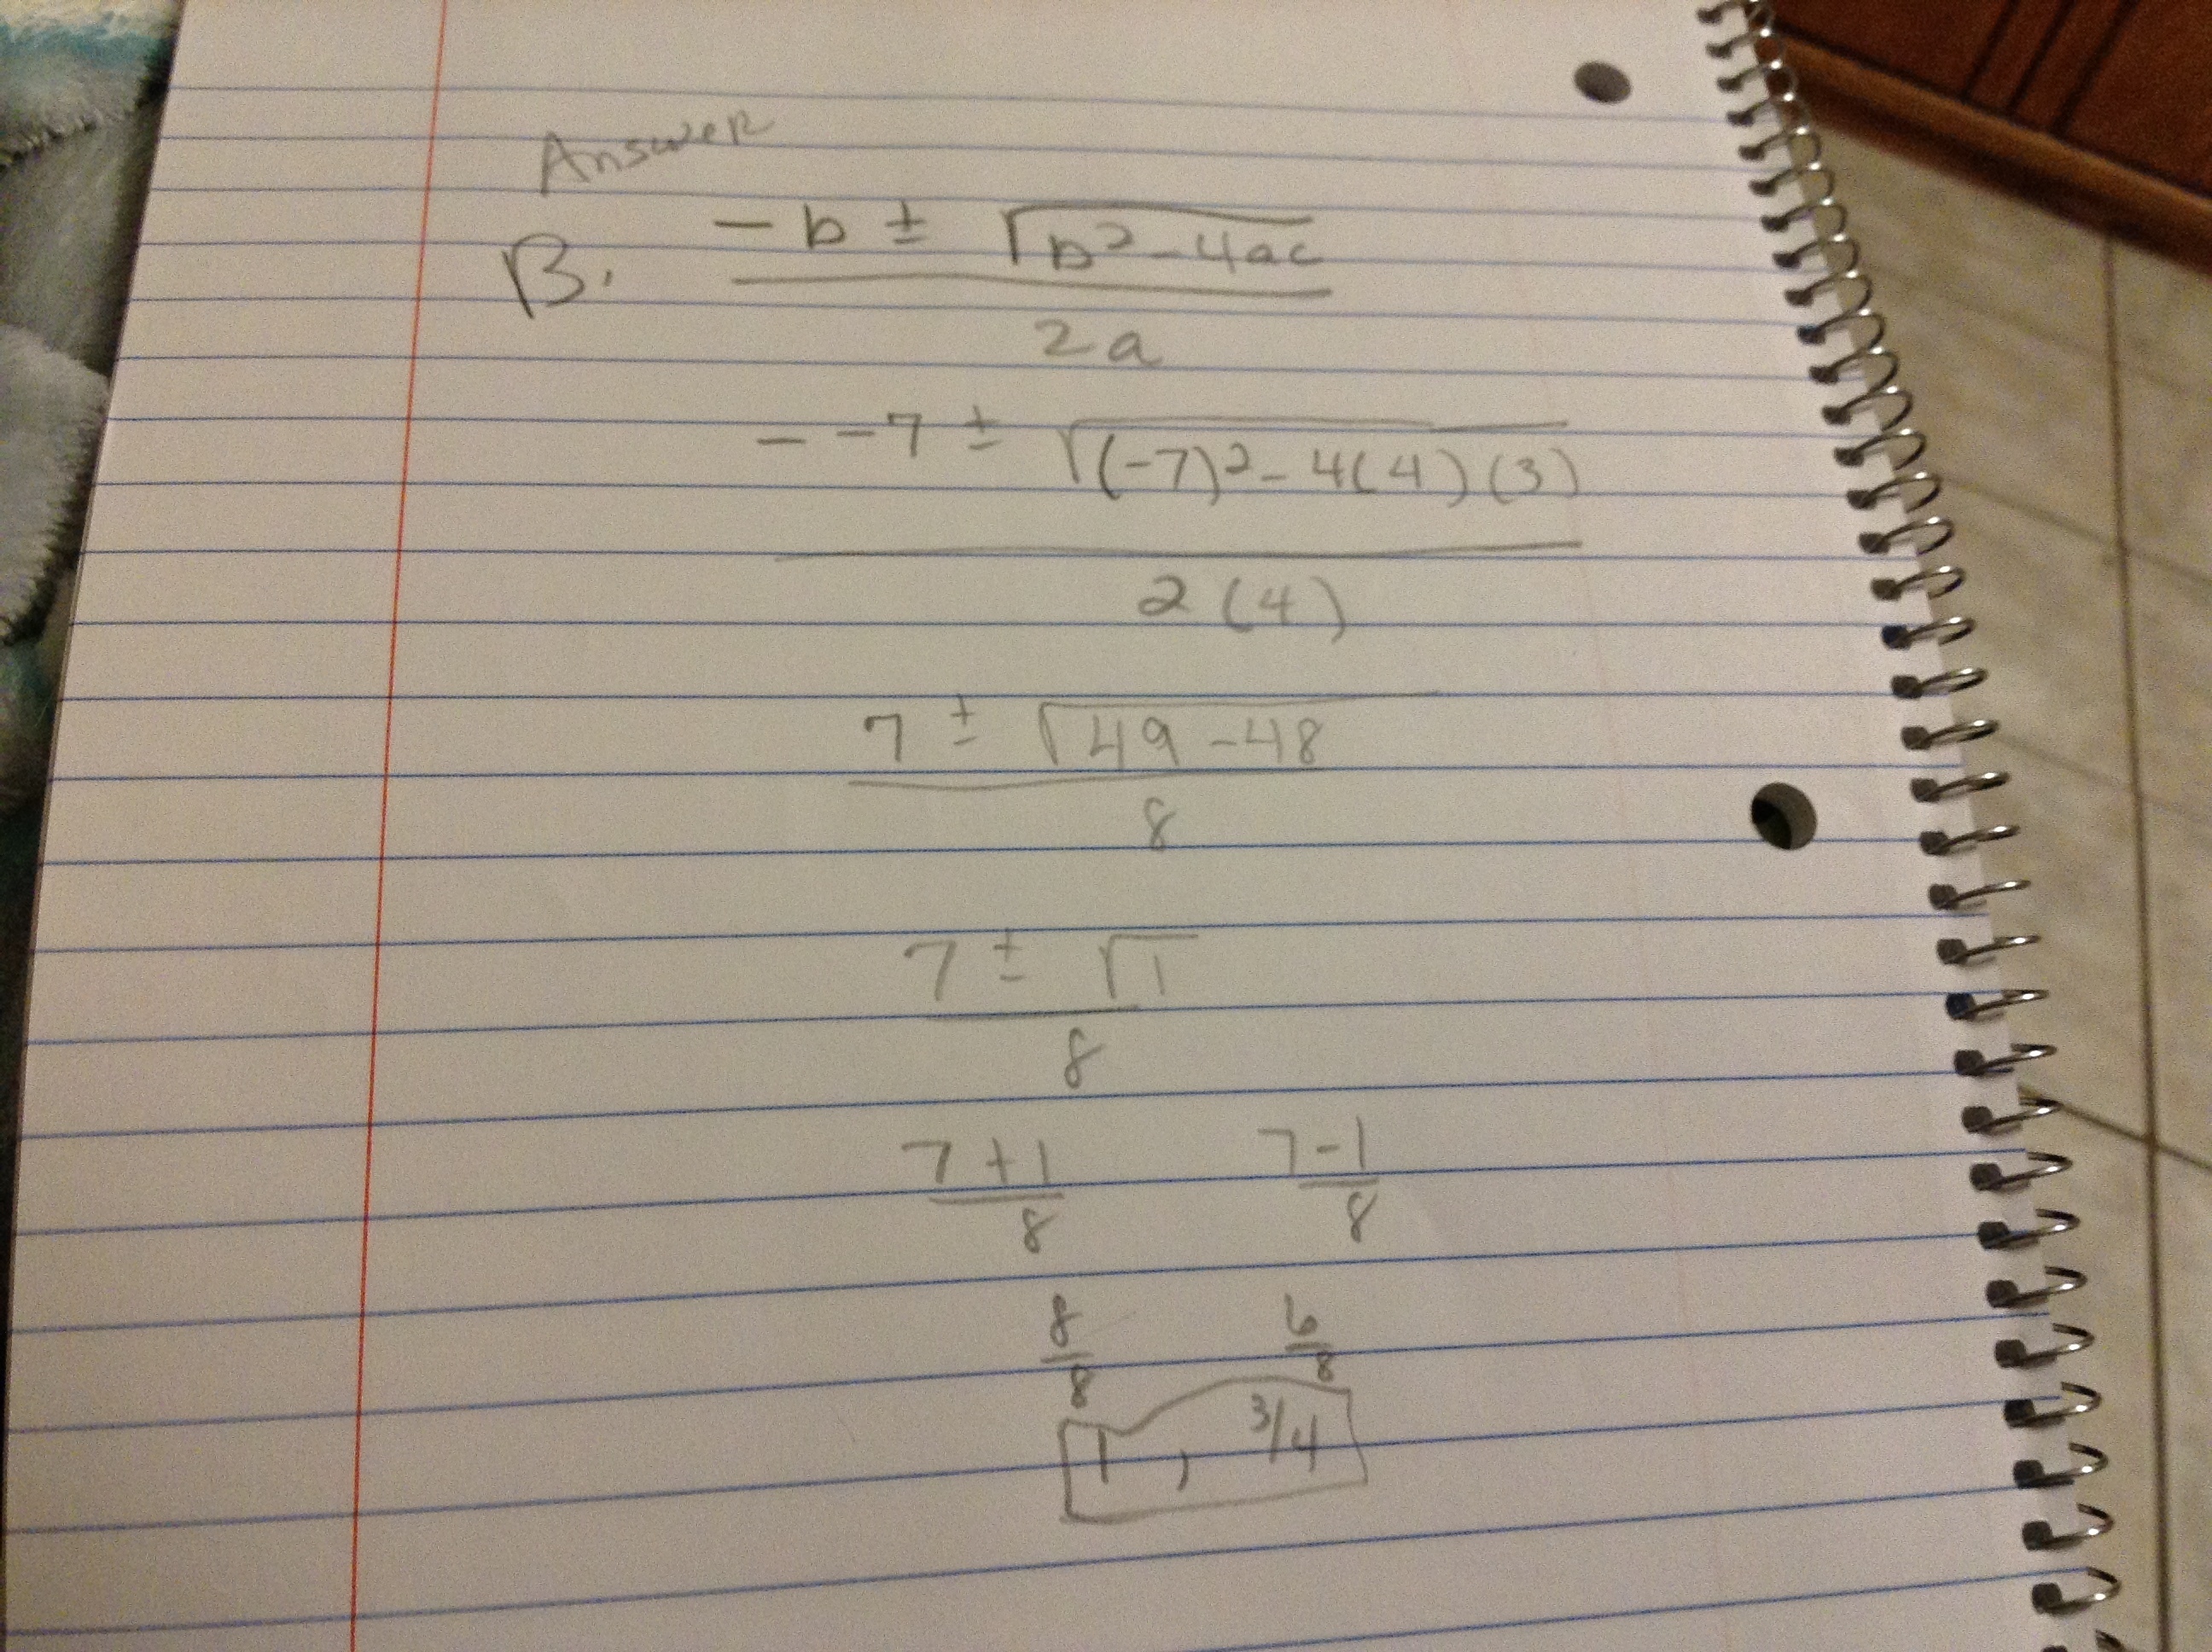 Answer
B. -b ± √b²-4ac
2a
- -7 ± √(-7)²-4(4)(3)
2(4)
7 ± √49-48
8
7 ± √1
8
7+1 7-1
8 8
8 6
8 8
1, 3/4